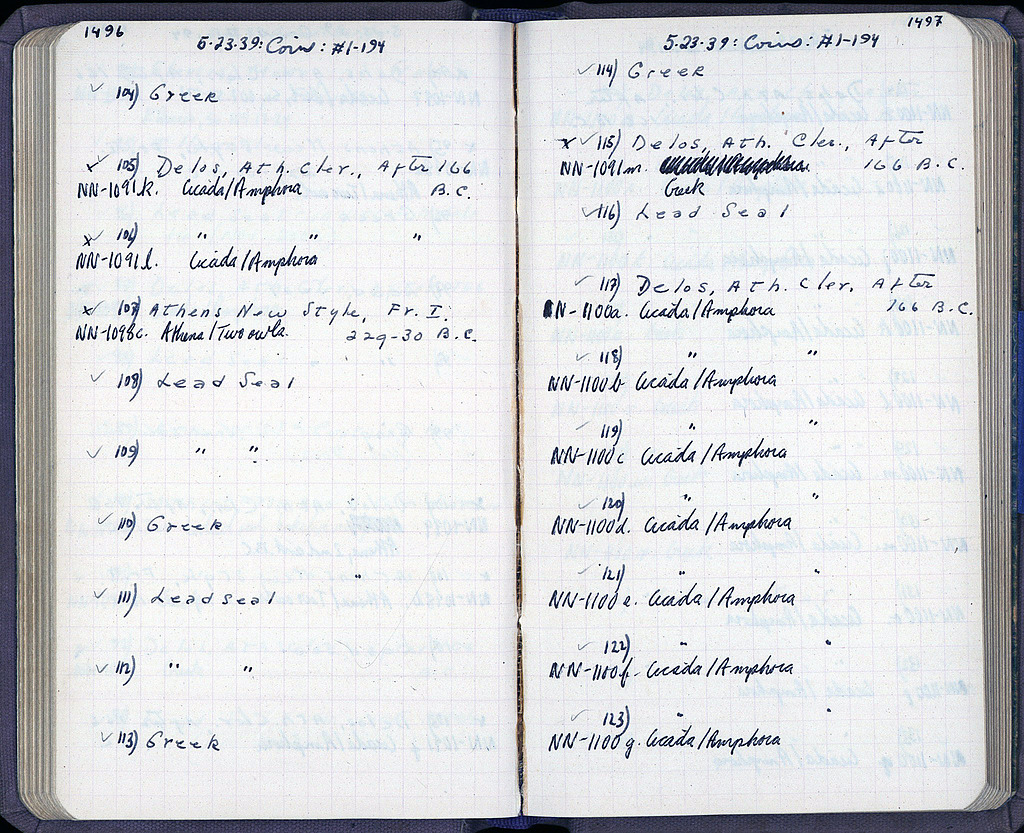 1496
5-23-39: Coins: #1-194
✓ 104) Greek
x 105) Delos, Ath. Cler., After 166
NN-1091k. Cicada/Amphora B.C.
x 106) " " "
NN-1091l. Cicada/Amphora
x 107) Athens New Style, Fr. I.
NN-1098c. Athena/Two owls. 229-30 B.C.
✓ 108) Lead Seal
✓ 109) " "
✓ 110) Greek
"
✓ 111) Lead Seal
✓ 112) " "
✓ 113) Greek
1497
5-23-39: Coins: #1-194
✓ 114) Greek
x ✓ 115) Delos, Ath. Cler., After
NN-1091m. 166 B.C.
Greek
✓ 116) Lead Seal
✓ 117) Delos, Ath. Cler, After
NN-1100a. Cicada/Amphora 166 B.C.
✓ 118) " "
NN-1100b Cicada/Amphora
✓ 119) " "
NN-1100c Cicada/Amphora
✓ 120) " "
NN-1100d. Cicada/Amphora
✓ 121) " "
NN-1100e. Cicada/Amphora
✓ 122) " "
NN-1100f. Cicada/Amphora
✓ 123) " "
NN-1100g. Cicada/Amphora